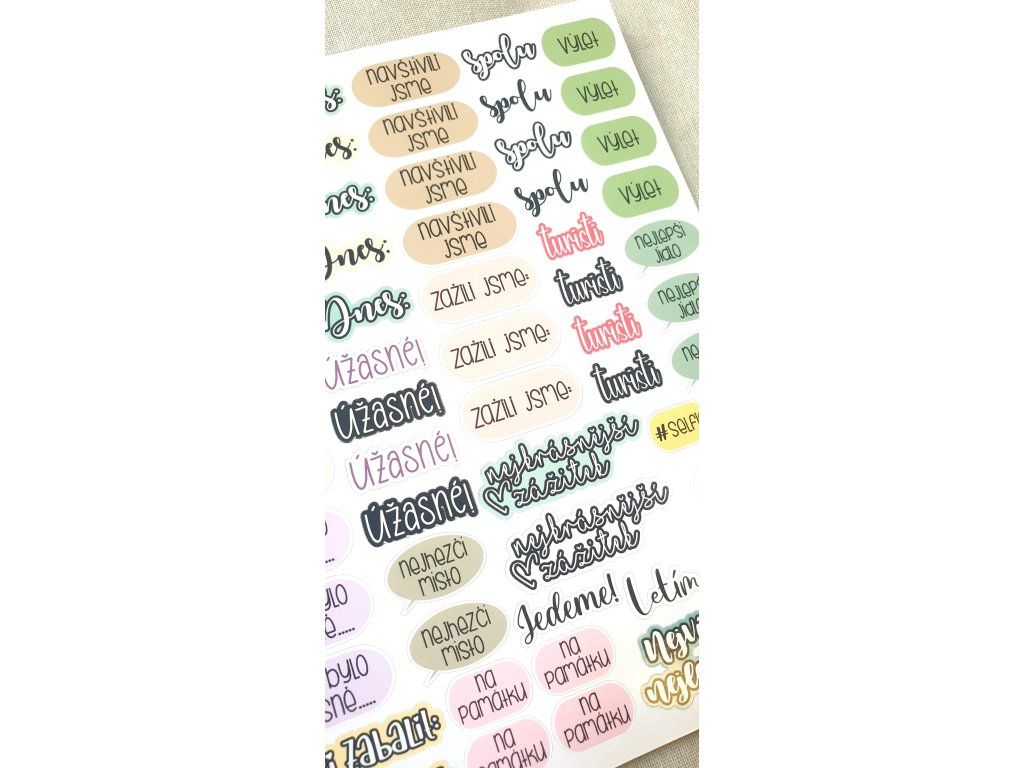 navštívili
jsme
spolu
výlet
navštívili
jsme
spolu
výlet
navštívili
jsme
spolu
výlet
navštívili
jsme
spolu
výlet
Dnes:
zažili jsme:
turisti
nejlepší
jídlo
Dnes:
zažili jsme:
turisti
Úžasné!
zažili jsme:
turisti
Úžasné!
turisti
Úžasné!
nejkrásnější
zážitek
Úžasné!
nejkrásnější
zážitek
nejhezčí
místo
Jedeme!
nejhezčí
místo
na
památku
na
památku
na
památku
na
památku
zabalit: